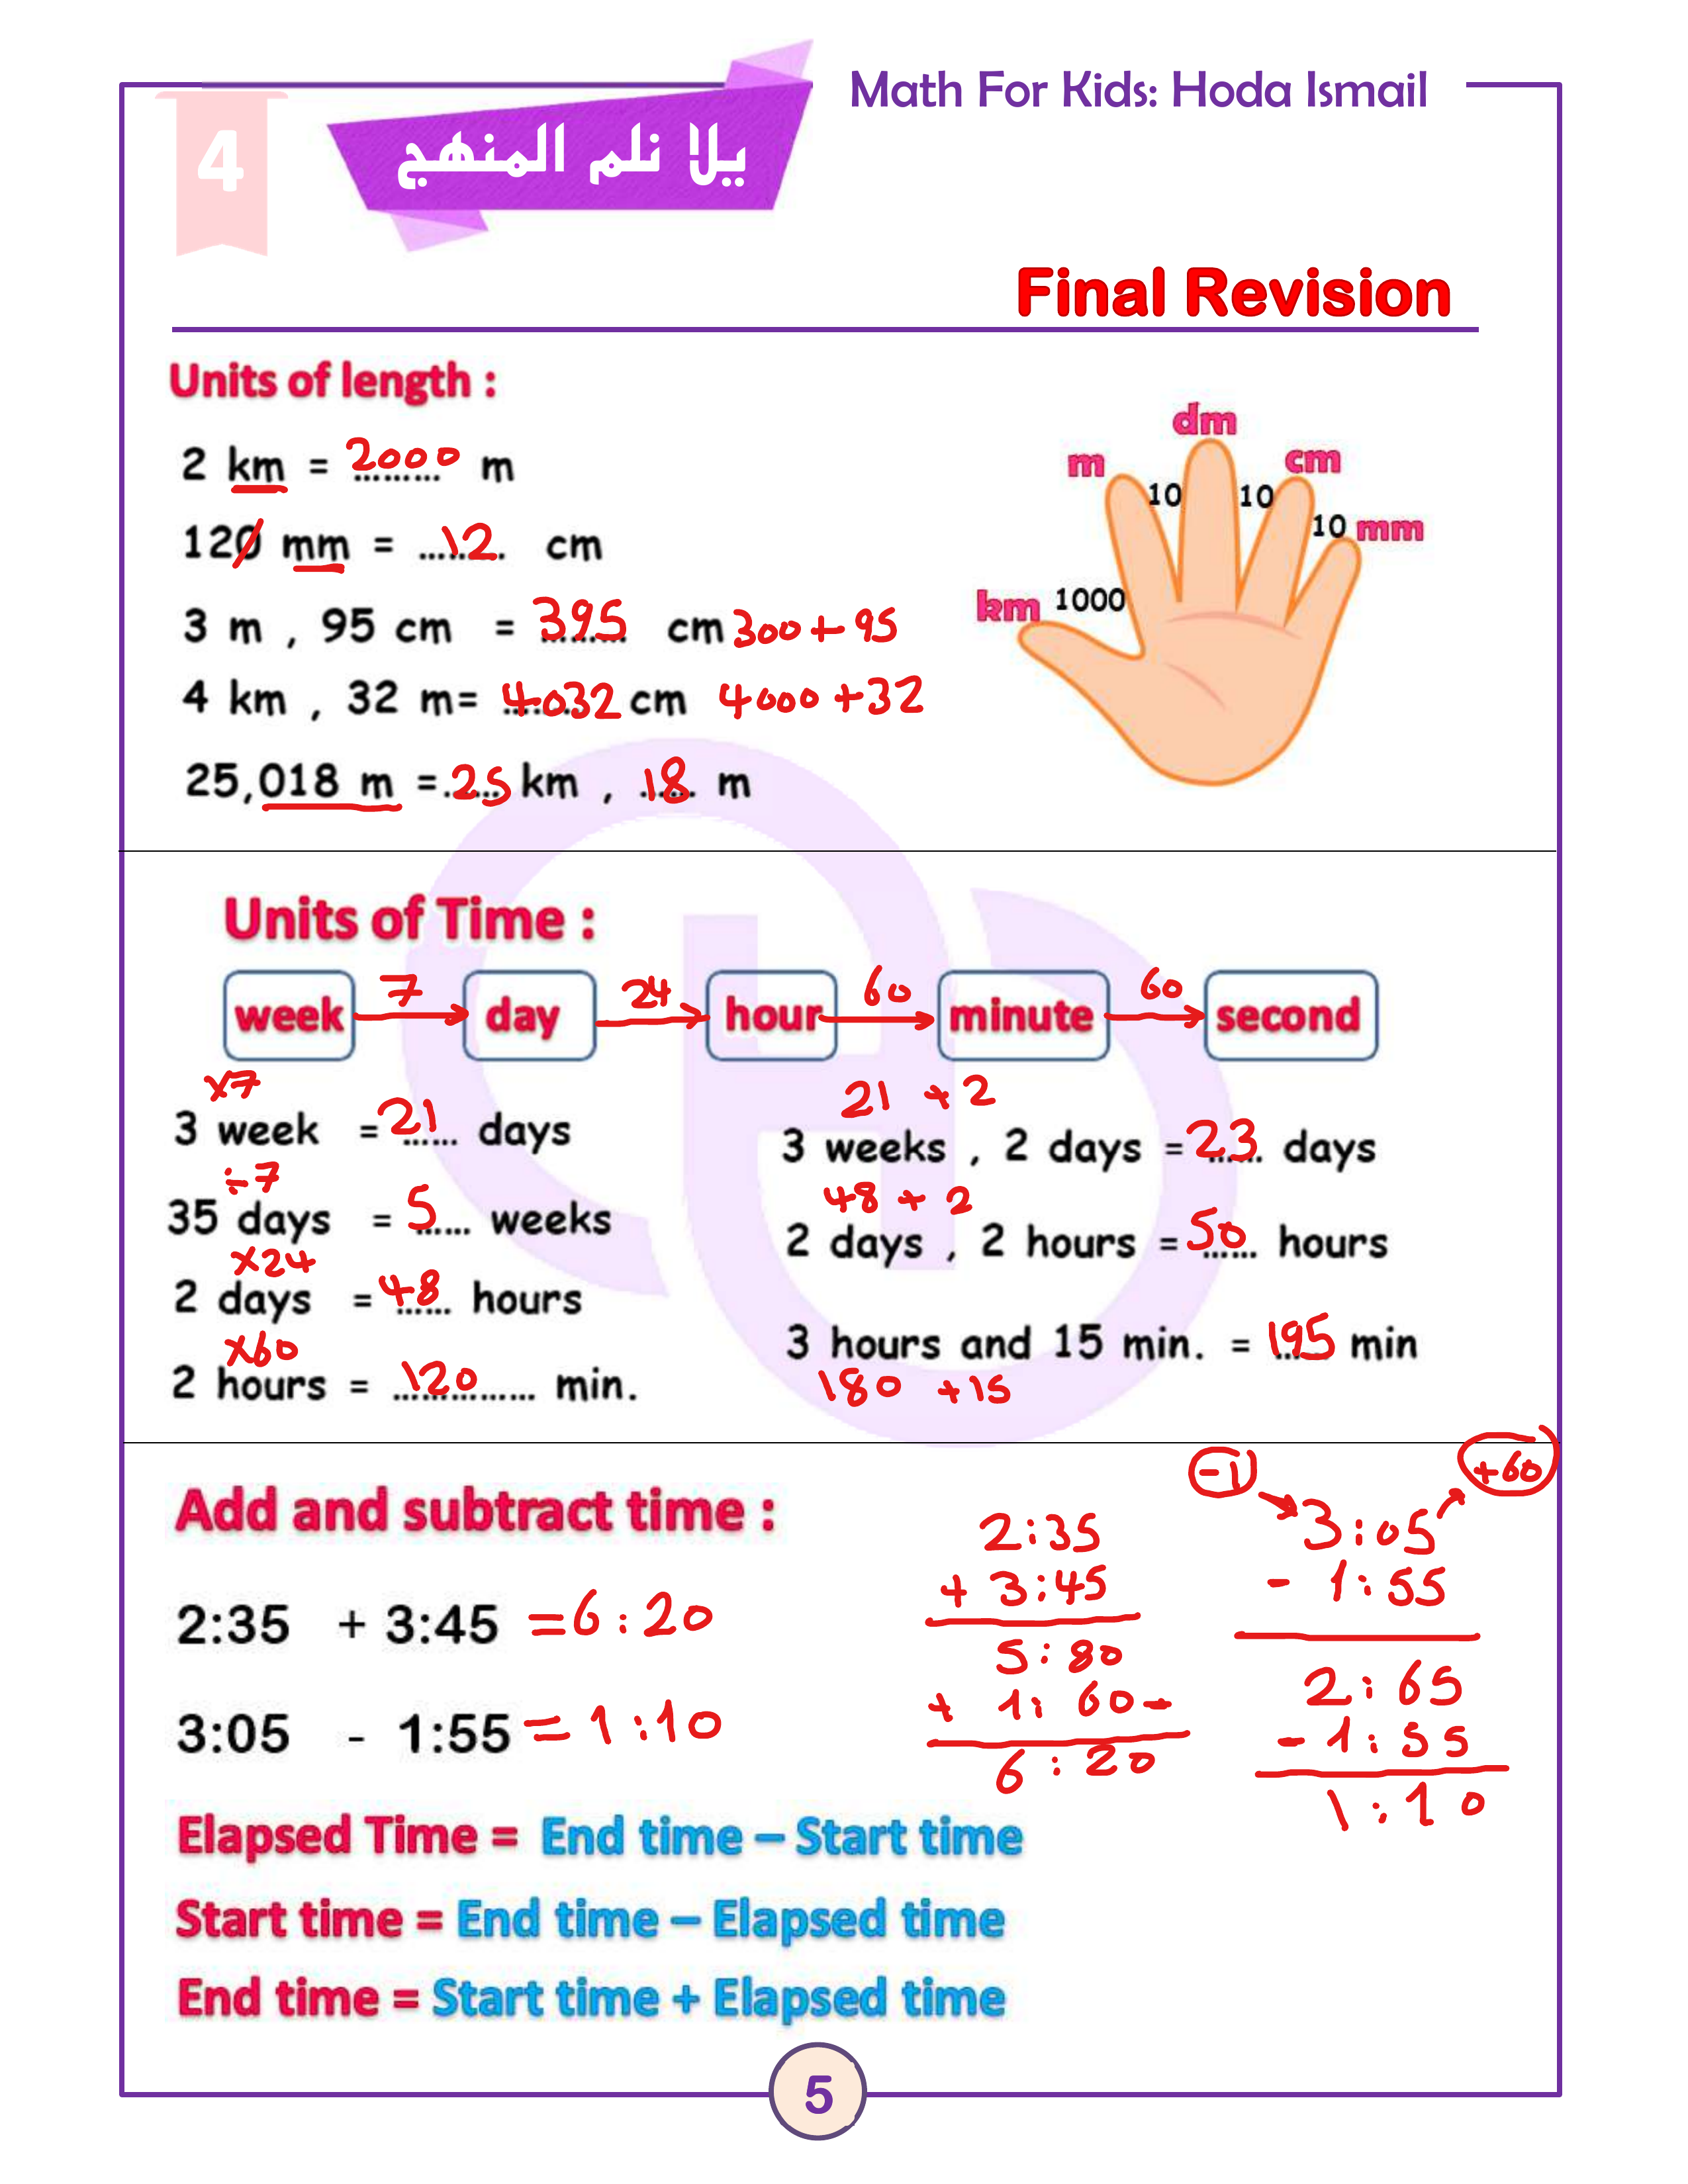 Math For Kids: Hoda Ismail
4
يلا نلم المنهج
Final Revision
Units of length :
2 km = 2000 m
120 mm = 12 cm
3 m , 95 cm = 395 cm 300 + 95
4 km , 32 m= 4032 cm 4000 + 32
25,018 m = 25 km , 18 m
km 1000 m 10 dm 10 cm 10 mm
Units of Time :
week 7 day 24 hour 60 minute 60 second
×7
3 week = 21 days
÷7
35 days = 5 weeks
×24
2 days = 48 hours
×60
2 hours = 120 min.
21 + 2
3 weeks , 2 days = 23 days
48 + 2
2 days , 2 hours = 50 hours
3 hours and 15 min. = 195 min
180 + 15
Add and subtract time :
2:35 + 3:45 = 6:20
3:05 - 1:55 = 1:10
2:35
+ 3:45
5:80
+ 1: 60-
6:20
-1 +60
3:05
- 1:55
2:65
- 1:55
1:10
Elapsed Time = End time – Start time
Start time = End time – Elapsed time
End time = Start time + Elapsed time
5